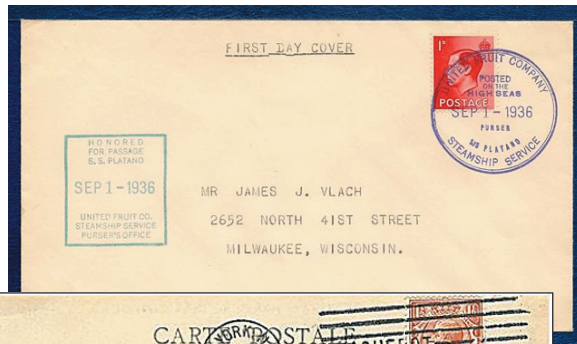 FIRST DAY COVER
1D
POSTAGE
UNITED FRUIT COMPANY
POSTED
ON THE
HIGH SEAS
SEP 1 - 1936
PURSER
S/S PLATANO
STEAMSHIP SERVICE
HONORED
FOR PASSAGE
S. S. PLATANO
SEP 1 - 1936
UNITED FRUIT CO.
STEAMSHIP SERVICE
PURSER'S OFFICE
MR JAMES J. VLACH
2652 NORTH 41ST STREET
MILWAUKEE, WISCONSIN.
CARTE POSTALE
YORK